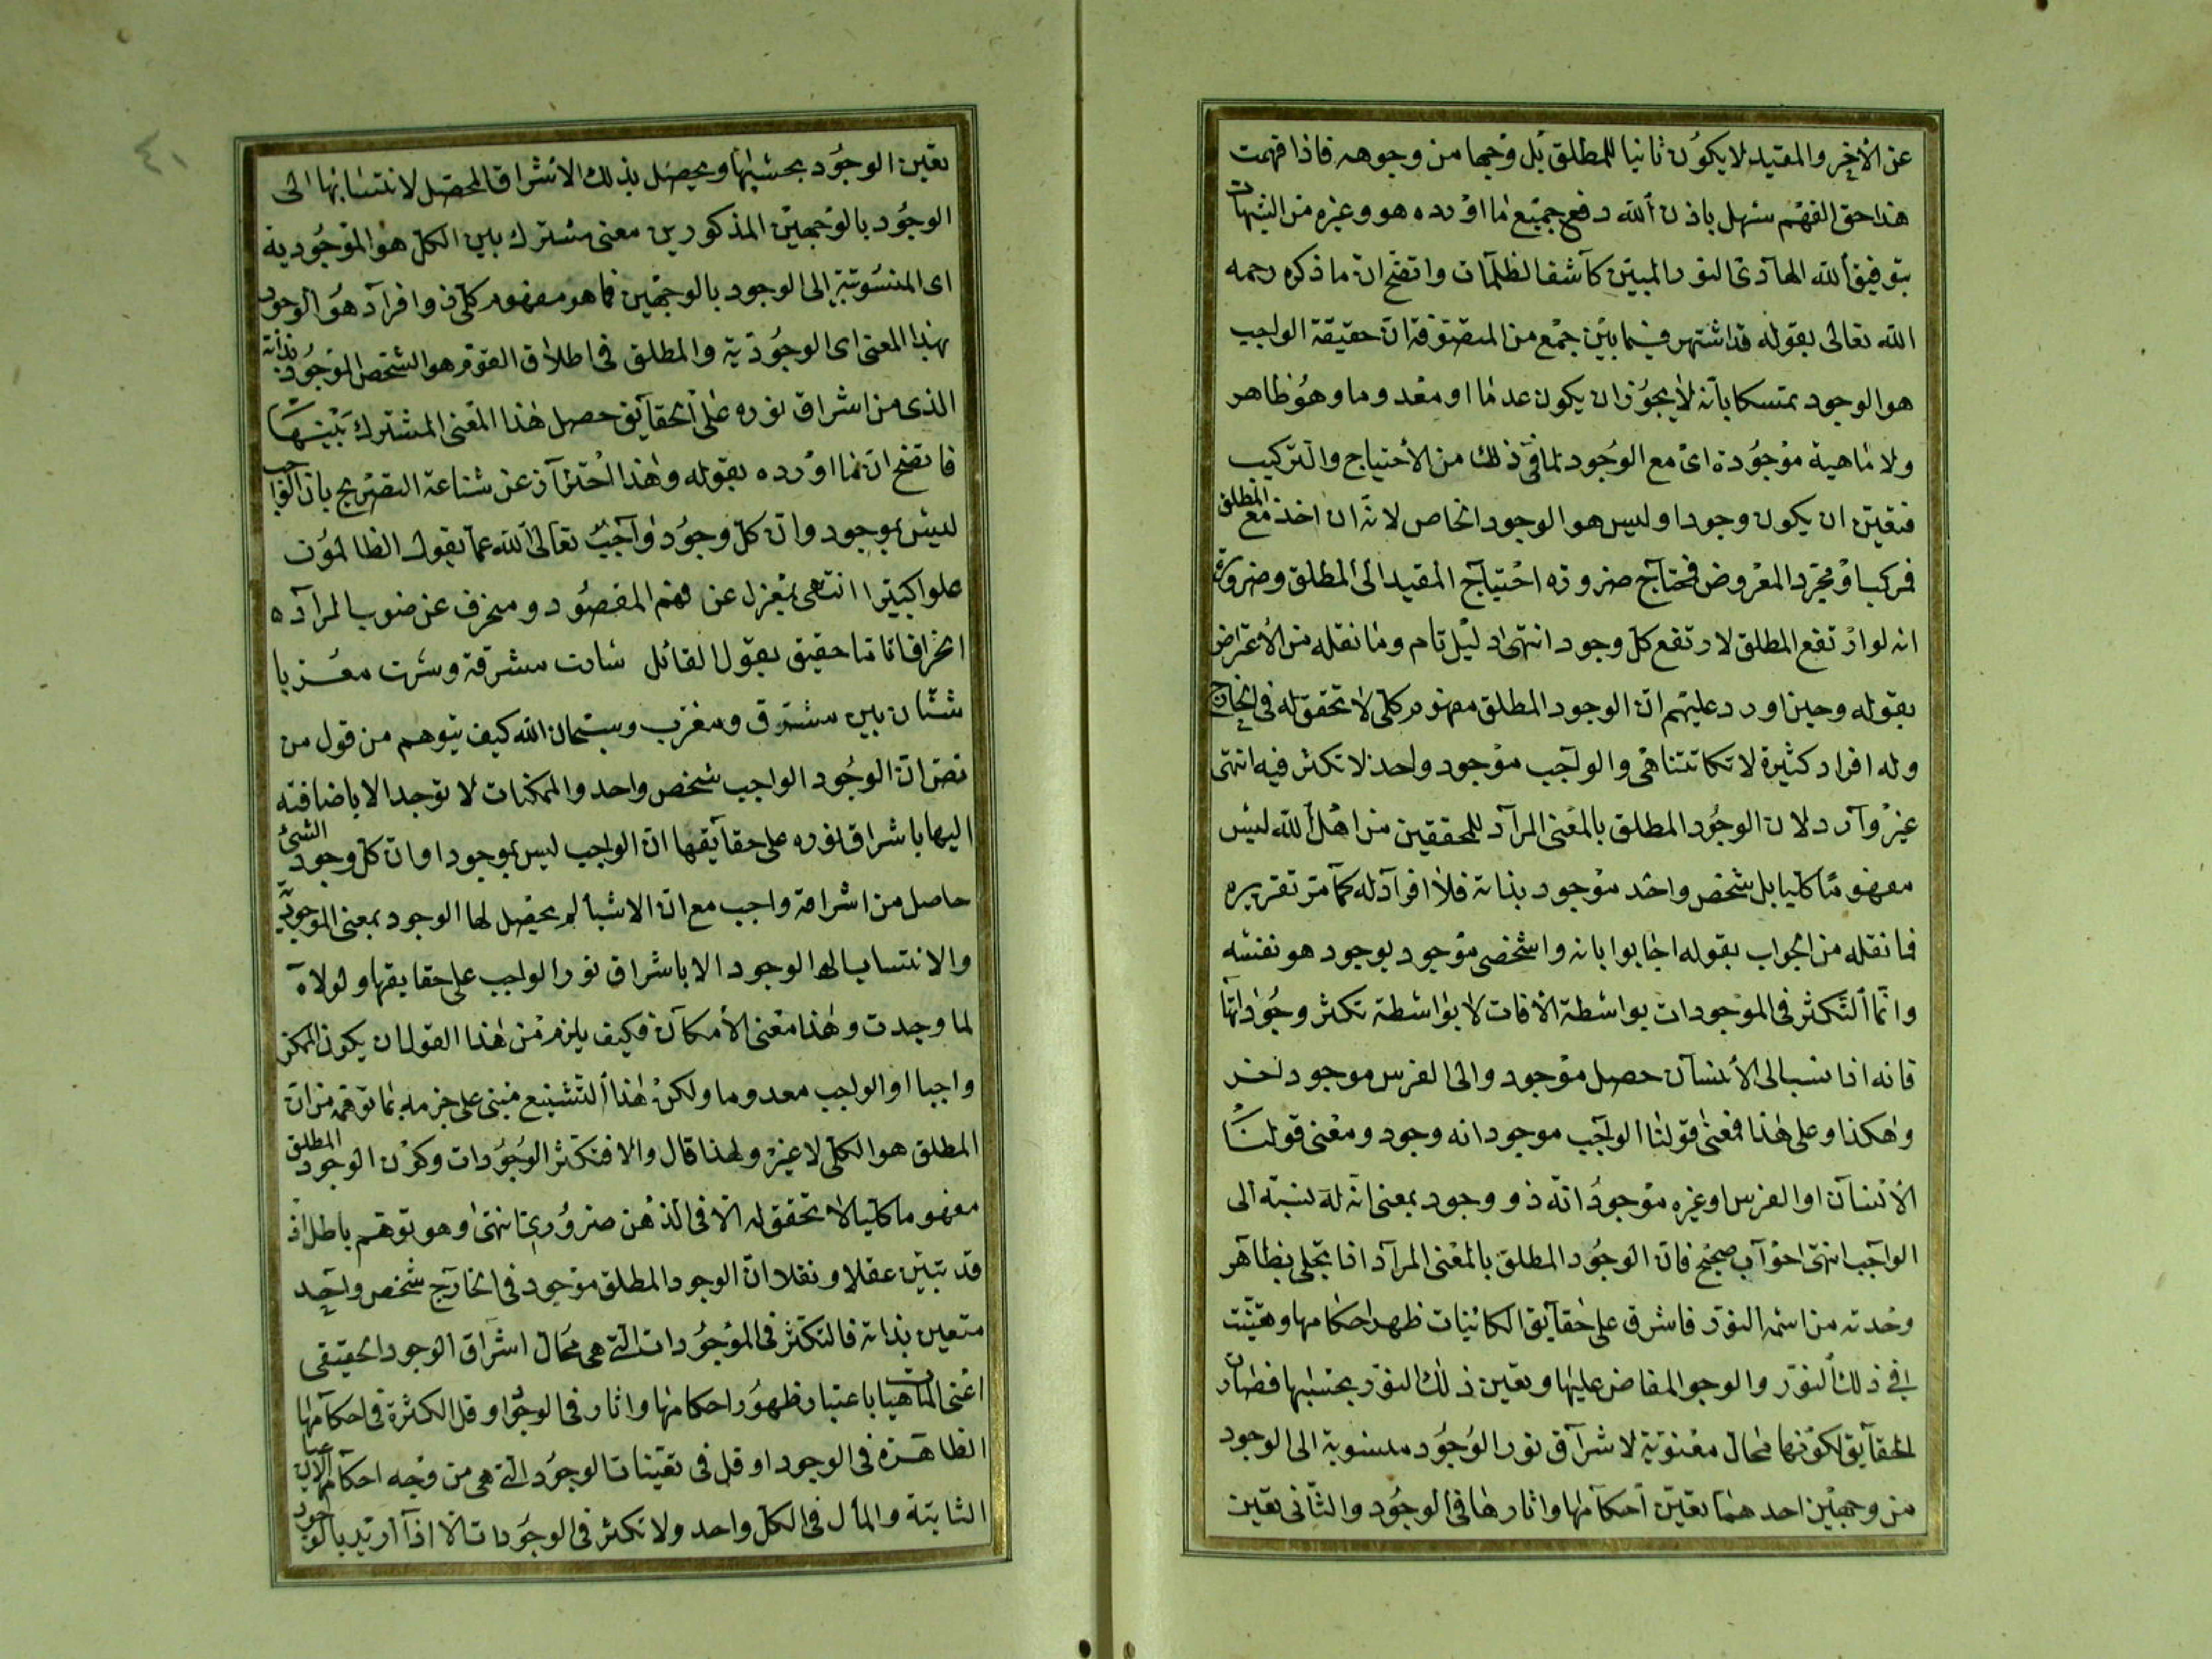 عن الاخر والمقيد لا يكون ثانيا للمطلق بل وجها من وجوهه فاذا فهمت
هذا حق الفهم سهل باذن الله دفع جميع ما اورده هو وغيره من الشبهات
بتوفيق الله الهادى النور المبين كاشف الظلمات واتضح ان ما ذكره رحمه
الله تعالى بقوله قد اشتهر فيما بين جمع من المتصوفة ان حقيقة الواجب
هو الوجود تمسكا بانه لا يجوز ان يكون عدما او معدوما وهو ظاهر
ولا ماهية موجودة اى مع الوجود لما فى ذلك من الاحتياج والتركيب
فتعين ان يكون وجودا وليس هو الوجود الخاص لانه ان اخذ مع المطلق
فمركب او مجرد المعروض فمحتاج ضرورة احتياج المقيد الى المطلق وضرورة
انه لو ارتفع المطلق لارتفع كل وجود انتهى دليل تام وما نقله من الاعتراض
بقوله وحين اورد عليهم ان الوجود المطلق مفهوم كلى لا تحقق له فى الخارج
وله افراد كثيرة لا تكاد تتناهى والواجب موجود واحد لا تكثر فيه انتهى
غير وارد لان الوجود المطلق بالمعنى المراد للمحققين من اهل الله ليس
مفهوما كليا بل شخص واحد موجود بذاته فلا افراد له كما مر تقريره
فما نقله من الجواب بقوله اجابوا بانه واحد شخصى موجود بوجود هو نفسه
وانما التكثر فى الموجودات بواسطة الاضافات لا بواسطة تكثر وجوداتها
فانه اذا نسب الى الانسان حصل موجود والى الفرس موجود اخر
وهكذا وعلى هذا فمعنى قولنا الواجب موجود انه وجود ومعنى قولنا
الانسان او الفرس او غيره موجود انه ذو وجود بمعنى ان له نسبة الى
الواجب انتهى جواب صحيح فان الوجود المطلق بالمعنى المراد اذا تجلى بظاهر
وحدته من اسمه النور فاشرق على حقايق الكائنات ظهر احكامها وهيئت
فى ذلك النور والوجود المفاض عليها وتعين ذلك النور بحسبها فصارت
الحقايق لكونها محال معنوية لاشراق نور الوجود منسوبة الى الوجود
من وجهين احدهما تعين احكامها واثارها فى الوجود والثانى تعين
تعين الوجود بحسبها ويحصل بذلك الاشراق المحصل لانتسابها الى
الوجود بالوجهين المذكورين معنى مشترك بين الكل هو الموجودية
اى المنسوبية الى الوجود بالوجهين فما هو مفهوم كلى ذو افراد هو الوجود
بهذا المعنى اى الوجودية والمطلق فى اطلاق القوم هو الشخص الموجود بذاته
الذى من اشراق نوره على الحقايق حصل هذا المعنى المشترك بينها
فاتضح ان ما اورده بقوله وهذا احتراز عن شناعة التصريح بان الواجب
ليس بموجود وان كل وجود واجب تعالى الله عما يقول الظالمون
علوا كبيرا انتهى بمعزل عن فهم المقصود ومنحرف عن صوب المراد
انحرافا تاما حقيق بقول القائل سارت مشرقة وسرت مغربا
شتان بين مشرق ومغرب وسبحان الله كيف يتوهم من قول من
نص ان الوجود الواجب شخص واحد والممكنات لا توجد الا باضافته
اليها باشراق نوره على حقايقها ان الواجب ليس بموجود او ان كل وجود الشئ
حاصل من اشراقه واجب مع ان الاشيا لم يحصل لها الوجود بمعنى الموجودية
والانتساب الى الوجود الا باشراق نور الواجب على حقايقها ولولاه
لما وجدت وهذا معنى الامكان فكيف يلزم من هذا القول ان يكون الممكن
واجبا او الواجب معدوما ولكن هذا التشنيع مبنى على جزمه بما توهمه من ان
المطلق هو الكلى لا غير ولهذا قال والا فتكثر الوجودات وكون الوجود المطلق
مفهوما كليا لا تحقق له الا فى الذهن ضرورى انتهى وهو توهم باطل اذ
قد تبين عقلا ونقلا ان الوجود المطلق موجود فى الخارج شخص واحد
متعين بذاته فالتكثر فى الموجودات التى هى محال اشراق الوجود الحقيقى
اعنى الماهيات باعتبار ظهور احكامها واثار فى الوجود او قل الكثرة فى احكامها
الظاهرة فى الوجود او قل فى تعينات الوجود التى هى من وجه احكام الاعيان
الثابتة والمال فى الكل واحد ولا تكثر فى الوجودات الا اذا اريد بالوجود